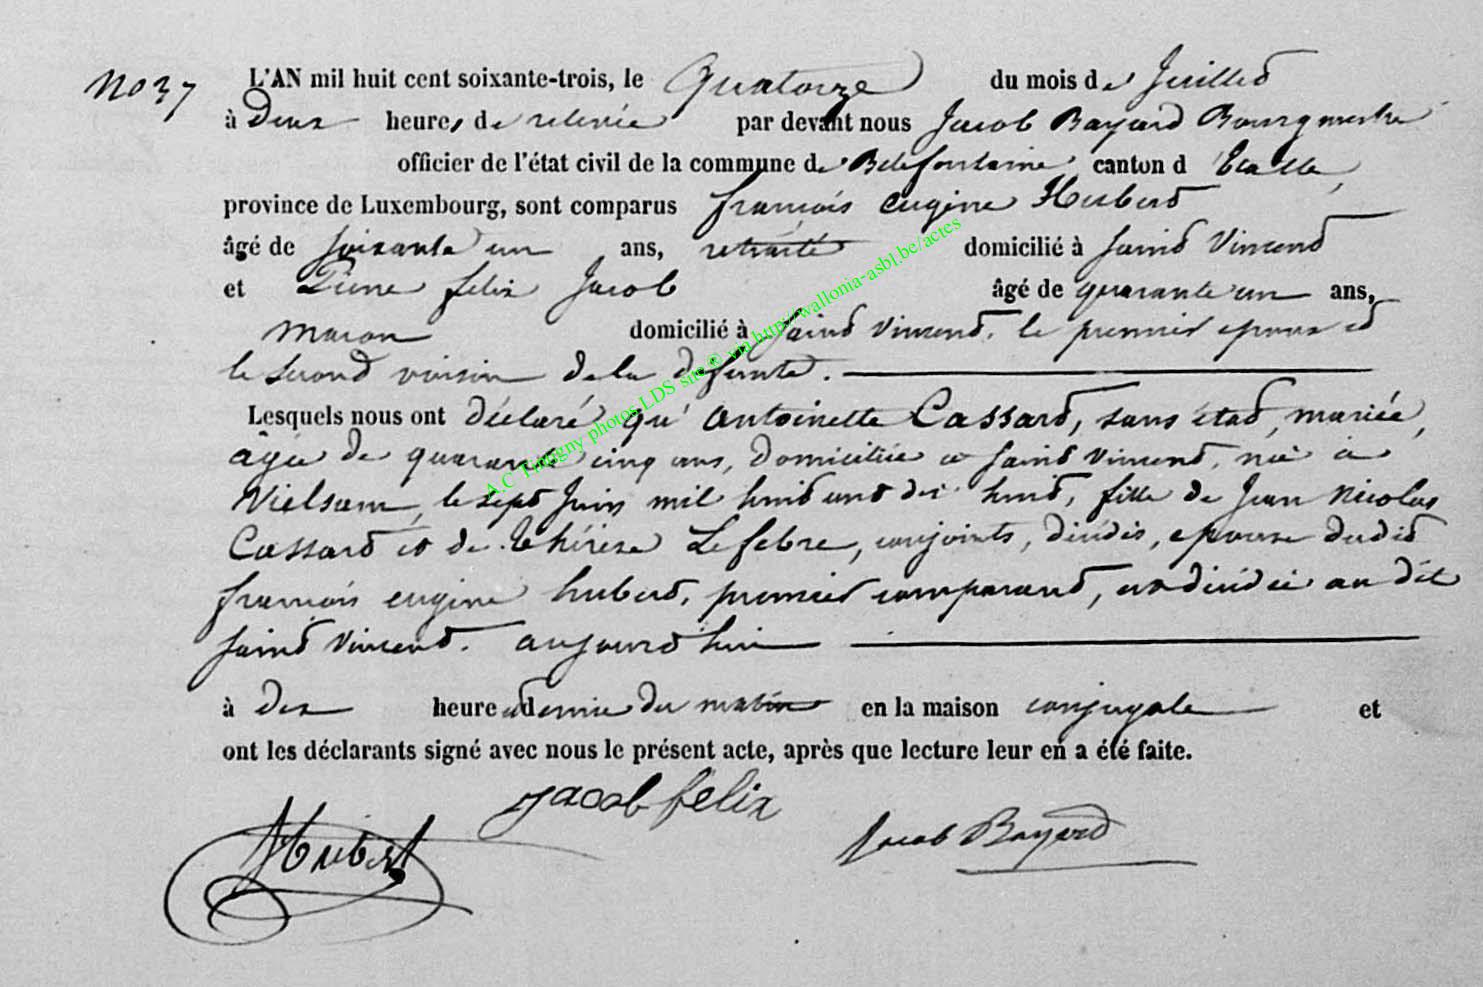 No 37 L'AN mil huit cent soixante-trois, le Quatorze du mois de Juillet
à Deux heures de relevée par devant nous Jacob Bayard Bourgmestre
officier de l'état civil de la commune de Bellefontaine canton d'Etalle,
province de Luxembourg, sont comparus françois eugène Hubert
âgé de soixante un ans, retraité domicilié à Saint Vincent
et Pierre felix Jacob âgé de quarante un ans,
maçon domicilié à Saint Vincent. le premier epoux et
le second voisin de la defunte.
Lesquels nous ont déclaré qu'Antoinette Cassard, sans état, mariée,
âgée de quarante cinq ans, domiciliée a Saint Vincent, née à
Vielsam, le sept Juin mil huit cent dix huit, fille de Jean Nicolas
Cassard et de Thérèse Lefebre, conjoints, décédés, epouse dudit
françois eugène hubert, premier comparant, est décédée au dit
Saint Vincent. aujourd'hui
à dix heure et demie du matin en la maison conjugale et
ont les déclarants signé avec nous le présent acte, après que lecture leur en a été faite.
Jacob félix
Hubert
Jacob Bayard
A.C Tintigny photos LDS site © via http://wallonia-asbl.be/actes